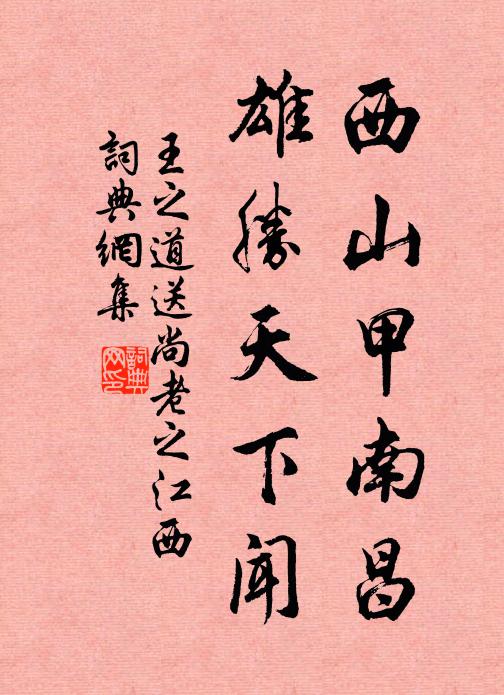 西山甲南昌
雄勝天下闻
王之道送尚老之江西
詞典網集
詞典網印